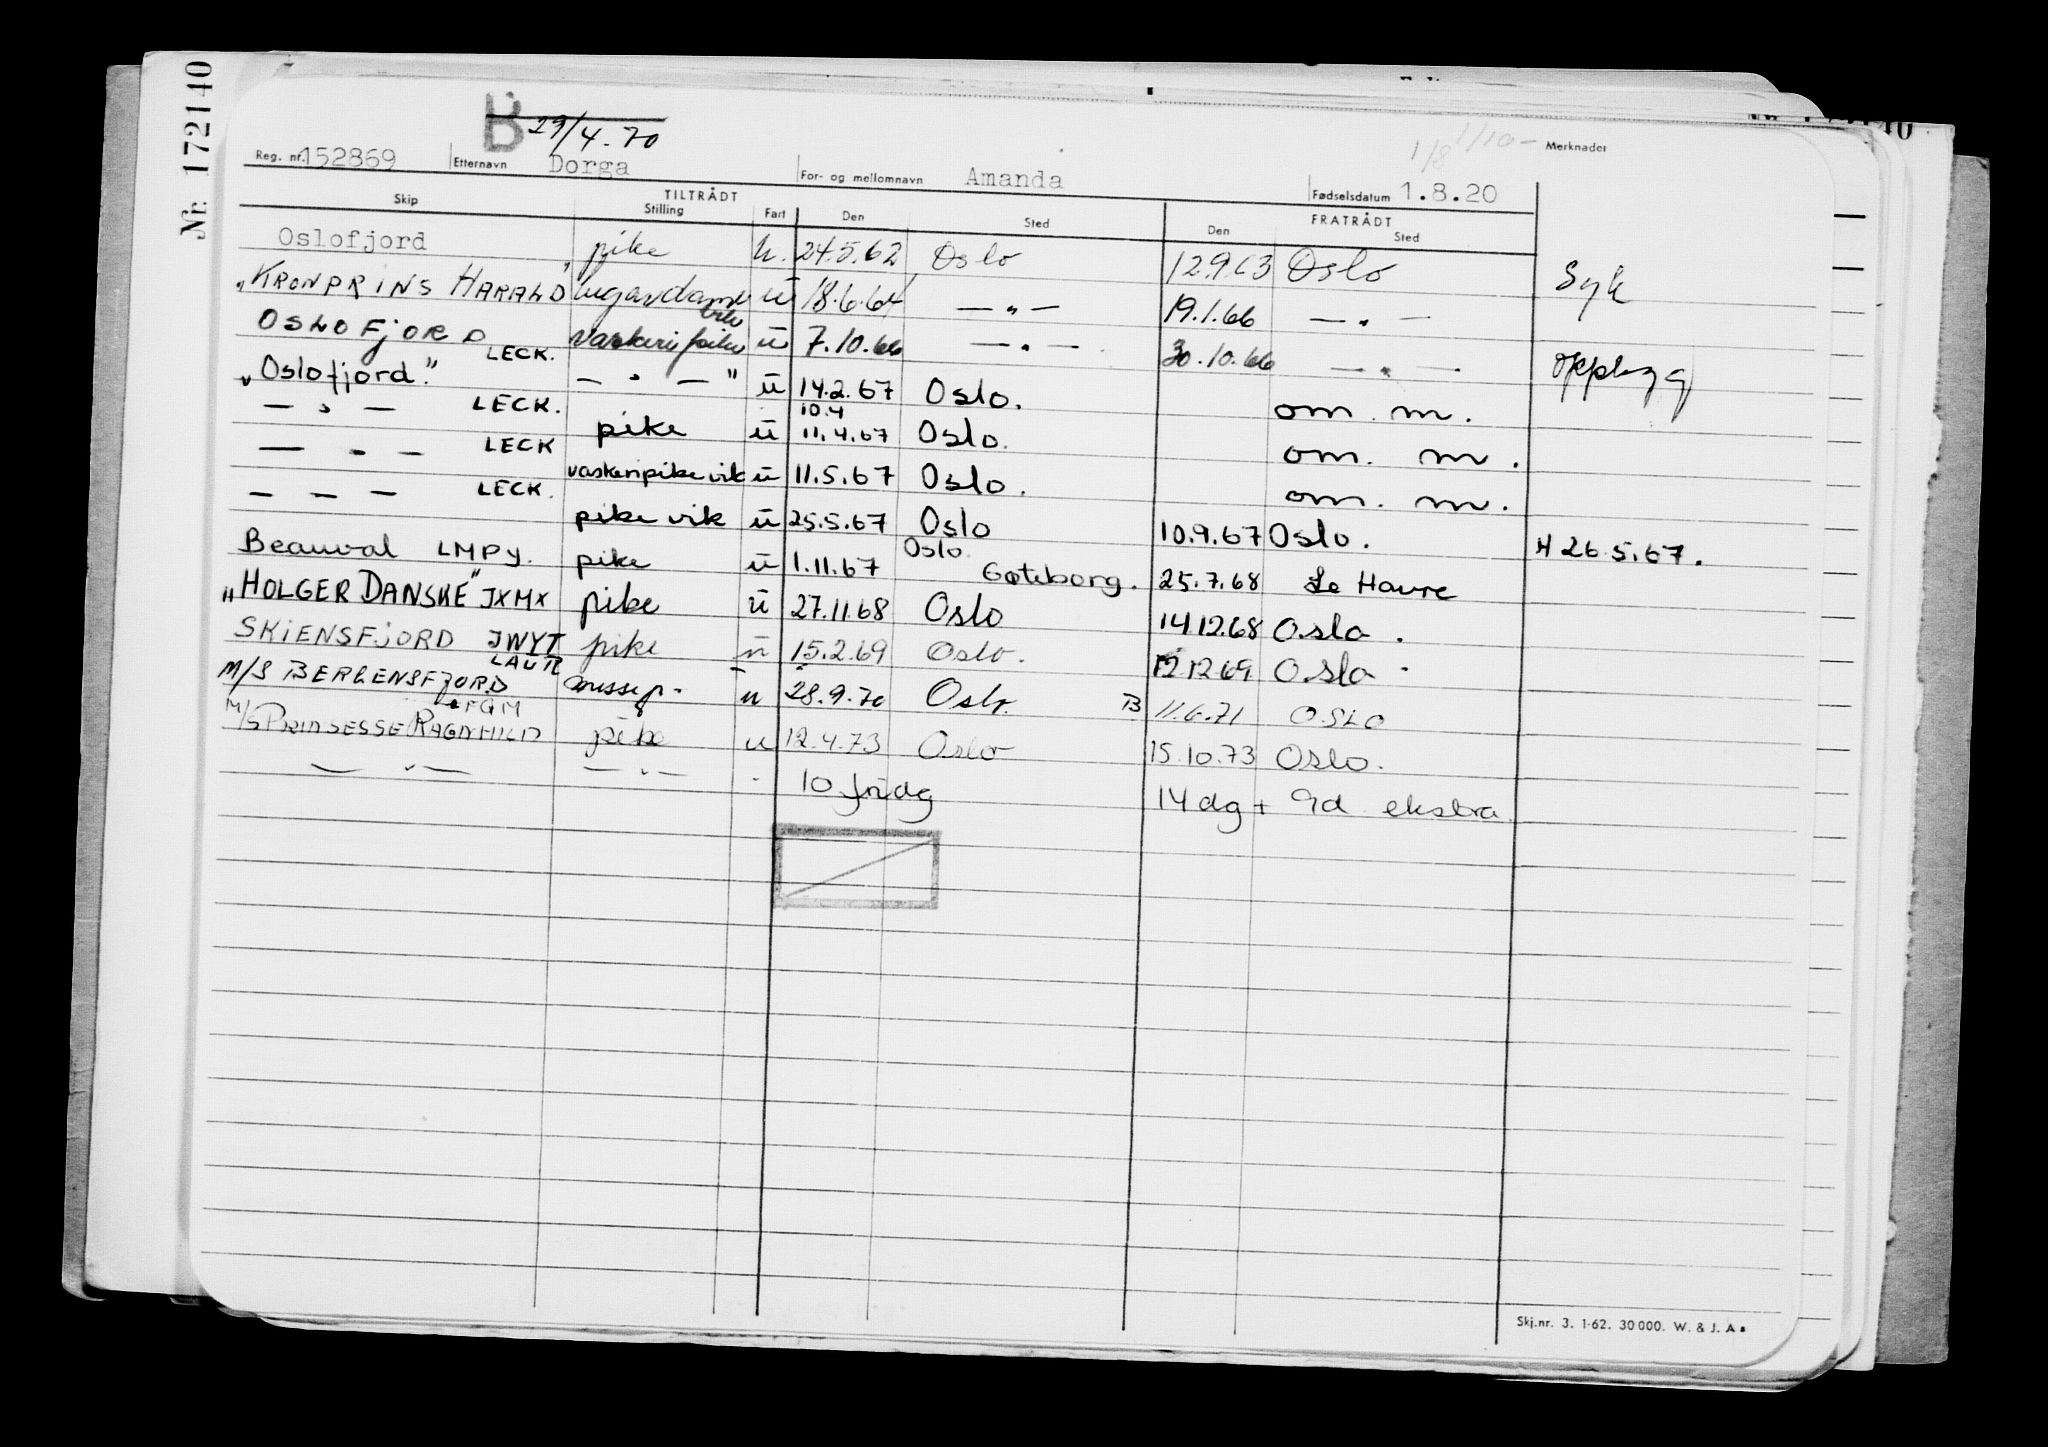 Nr. 172140
B 29/4-70
1/8 1/10-
Merknader
Reg. nr. 152869 Etternavn Dorga For- og mellomnavn Amanda Fødselsdatum 1.8.20
TILTRÅDT FRATRÅDT
Skip Stilling Fart Den Sted Den Sted
Oslofjord pike u. 24.5.62 Oslo 12.9.63 Oslo Syk
"KRONPRINS HARALD" lugardame ü 18.6.64 — " — 19.1.66 — " —
OSLOFJORD vaskeripike vik ü 7.10.66 — " — 30.10.66 — " — oppsagt
"Oslofjord." LECK. — " — " ü 14.2.67 Oslo. om. m.
— " — LECK. pike ü 10.4 11.4.67 Oslo. om. m.
— " — LECK vaskeripike vik ü 11.5.67 Oslo. om. m.
— — — LECK. pike vik ü 25.5.67 Oslo 10.9.67 Oslo. H 26.5.67.
Beauval LMPY. pike ü 1.11.67 Oslo. Gøteborg. 25.7.68 Le Havre
"HOLGER DANSKE" JXMX pike ü 27.11.68 Oslo 14.12.68 Oslo.
SKIENSFJORD JWYT pike ü 15.2.69 Oslo. 12.12.69 Oslo.
M/S BERGENSFJORD messep. u 28.9.70 Oslo. B 11.6.71 OSLO
M/S PRINSESSE RAGNHILD pike u 12.4.73 Oslo 15.10.73 Oslo.
— " — — " — 10 fridg 14 dg + 9d ekstra
Skj.nr. 3. 1-62. 30 000. W. & J. A.